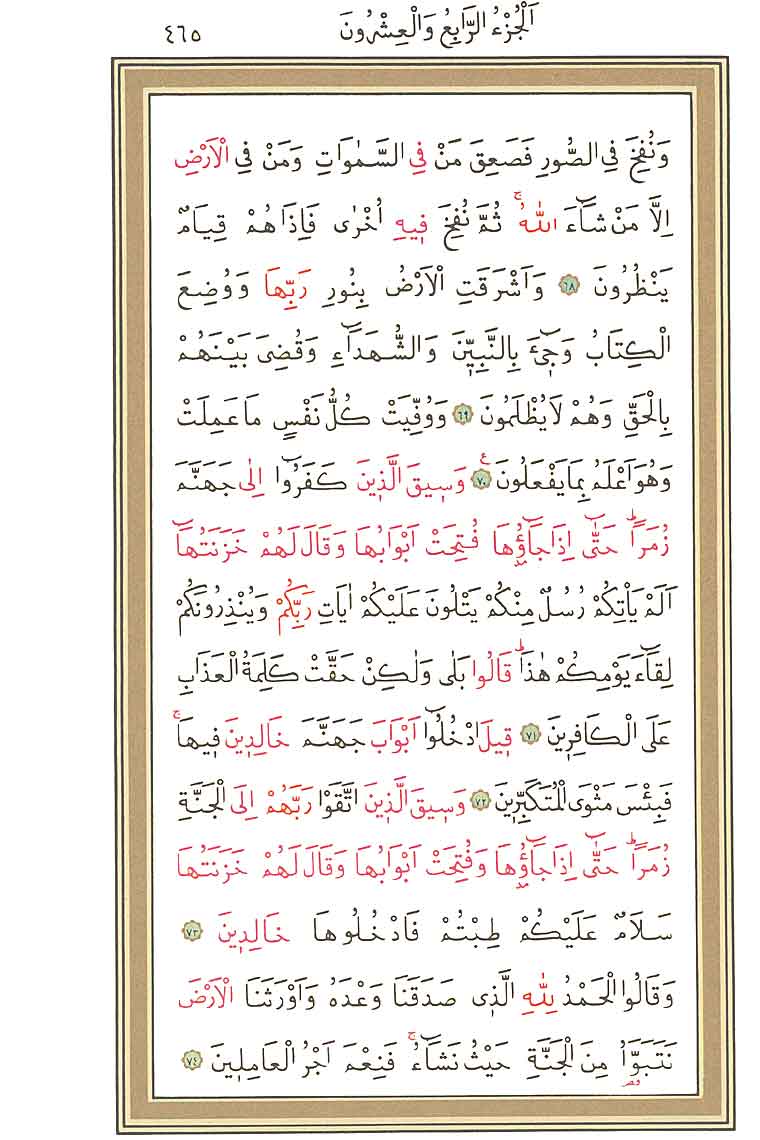 اَلْجُزْءُ الرَّابِعُ وَالْعِشْرُونَ ٤٦٥
وَنُفِخَ فِي الصُّورِ فَصَعِقَ مَنْ فِي السَّمٰوَاتِ وَمَنْ فِي الْاَرْضِ
اِلَّا مَنْ شَٓاءَ اللّٰهُۜ ثُمَّ نُفِخَ ف۪يهِ اُخْرٰى فَاِذَا هُمْ قِيَامٌ
يَنْظُرُونَ ﴿٦٨﴾ وَاَشْرَقَتِ الْاَرْضُ بِنُورِ رَبِّهَا وَوُضِعَ
الْكِتَابُ وَج۪ٓيءَ بِالنَّبِيّ۪نَ وَالشُّهَدَٓاءِ وَقُضِيَ بَيْنَهُمْ
بِالْحَقِّ وَهُمْ لَا يُظْلَمُونَ ﴿٦٩﴾ وَوُفِّيَتْ كُلُّ نَفْسٍ مَا عَمِلَتْ
وَهُوَ اَعْلَمُ بِمَا يَفْعَلُونَ۟ ﴿٧٠﴾ وَس۪يقَ الَّذ۪ينَ كَفَرُٓوا اِلٰى جَهَنَّمَ
زُمَرًاۜ حَتّٰٓى اِذَا جَٓاؤُ۫هَا فُتِحَتْ اَبْوَابُهَا وَقَالَ لَهُمْ خَزَنَتُهَٓا
اَلَمْ يَأْتِكُمْ رُسُلٌ مِنْكُمْ يَتْلُونَ عَلَيْكُمْ اٰيَاتِ رَبِّكُمْ وَيُنْذِرُونَكُمْ
لِقَٓاءَ يَوْمِكُمْ هٰذَاۜ قَالُوا بَلٰى وَلٰكِنْ حَقَّتْ كَلِمَةُ الْعَذَابِ
عَلَى الْكَافِر۪ينَ ﴿٧١﴾ ق۪يلَ ادْخُلُٓوا اَبْوَابَ جَهَنَّمَ خَالِد۪ينَ ف۪يهَاۚ
فَبِئْسَ مَثْوَى الْمُتَكَبِّر۪ينَ ﴿٧٢﴾ وَس۪يقَ الَّذ۪ينَ اتَّقَوْا رَبَّهُمْ اِلَى الْجَنَّةِ
زُمَرًاۜ حَتّٰٓى اِذَا جَٓاؤُ۫هَا وَفُتِحَتْ اَبْوَابُهَا وَقَالَ لَهُمْ خَزَنَتُهَا
سَلَامٌ عَلَيْكُمْ طِبْتُمْ فَادْخُلُوهَا خَالِد۪ينَ ﴿٧٣﴾
وَقَالُوا الْحَمْدُ لِلّٰهِ الَّذ۪ي صَدَقَنَا وَعْدَهُ وَاَوْرَثَنَا الْاَرْضَ
نَتَبَوَّاُ مِنَ الْجَنَّةِ حَيْثُ نَشَٓاءُۚ فَنِعْمَ اَجْرُ الْعَامِل۪ينَ ﴿٧٤﴾